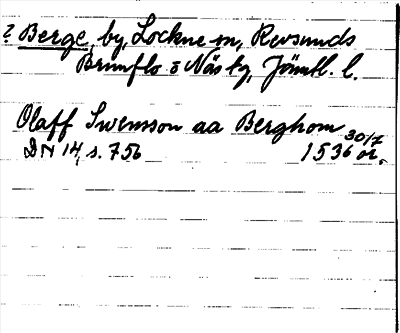 ? Berge, by, Lockne sn, Revsunds
Brunflo o Näs tg, Jämtl. l.
Olaff Swensson aa Berghom
30/7
DN 14, s. 756 1536 or.